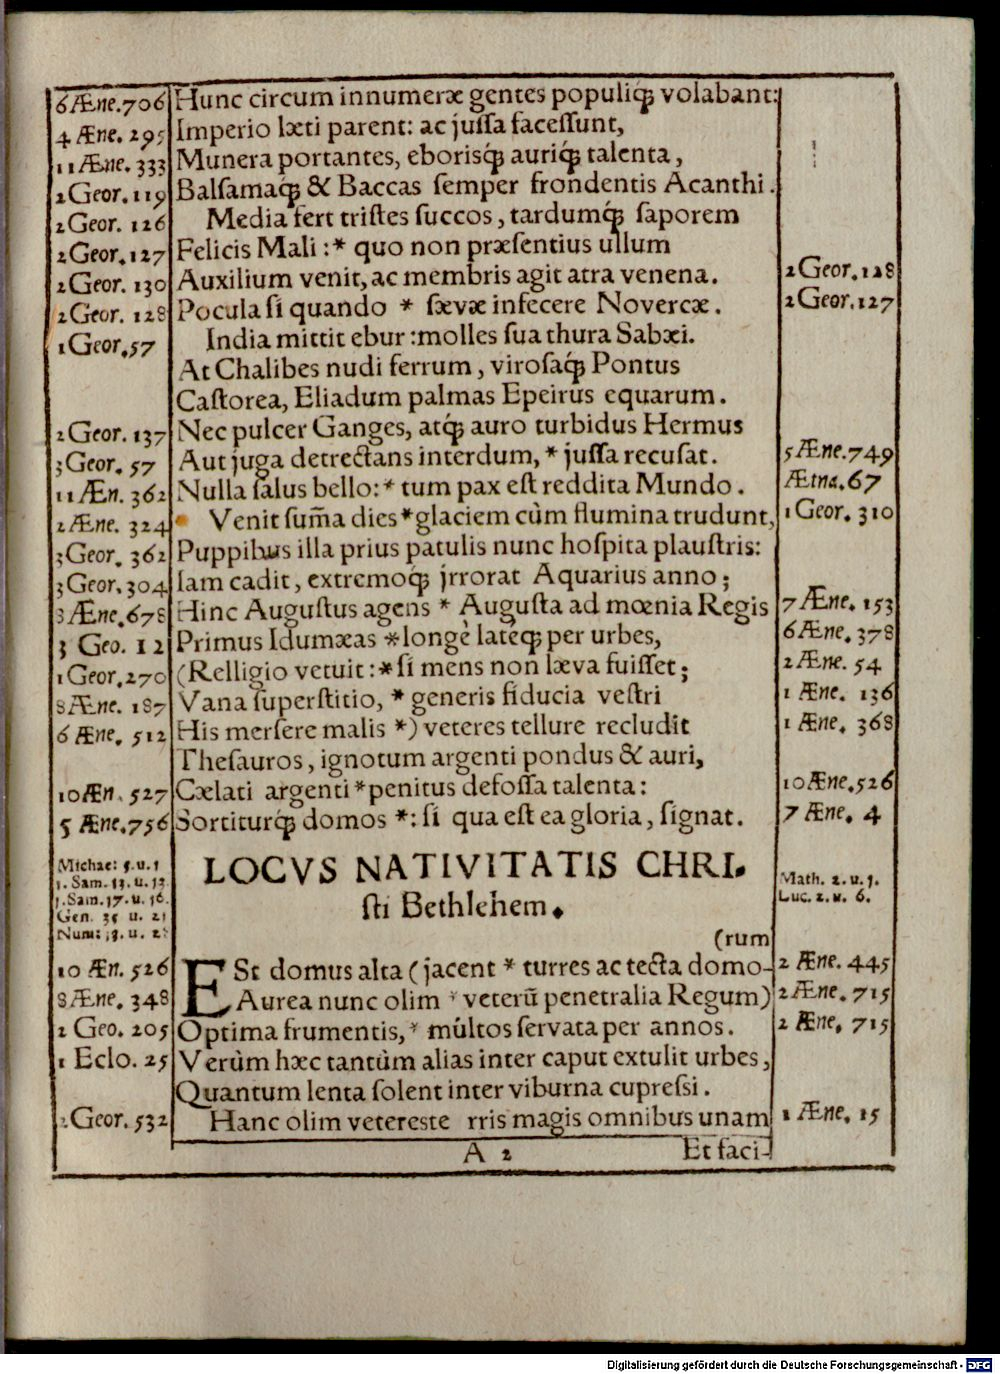 6 Æne. 706 Hunc circum innumeræ gentes populiq́; volabant:
4 Æne. 295 Imperio læti parent: ac juſſa faceſſunt,
11 Æne. 333 Munera portantes, eborisq́; auriq́; talenta,
2 Geor. 119 Balſamaq́; & Baccas ſemper frondentis Acanthi.
2 Geor. 126 Media fert triſtes ſuccos, tardumq́; ſaporem
2 Geor. 127 Felicis Mali: * quo non præſentius ullum
2 Geor. 130 Auxilium venit, ac membris agit atra venena. 2 Geor. 128
2 Geor. 128 Pocula ſi quando * ſævæ infecere Novercæ. 2 Geor. 127
1 Geor. 57 India mittit ebur: molles ſua thura Sabæi.
At Chalibes nudi ferrum, viroſaq́; Pontus
Caſtorea, Eliadum palmas Epeirus equarum.
2 Geor. 137 Nec pulcer Ganges, atq́; auro turbidus Hermus
3 Geor. 57 Aut juga detrectans interdum, * juſſa recuſat. 5 Æne. 749
11 Æn. 362 Nulla ſalus bello: * tum pax eſt reddita Mundo. Ætna. 67
2 Æne. 324 Venit ſum̃a dies * glaciem cùm flumina trudunt, 1 Geor. 310
3 Geor. 362 Puppibus illa prius patulis nunc hoſpita plauſtris:
3 Geor. 304 Iam cadit, extremoq́; jrrorat Aquarius anno;
8 Æne. 678 Hinc Auguſtus agens * Auguſta ad mœnia Regis 7 Æne. 153
3 Geo. 12 Primus Idumæas * longè lateq́; per urbes, 6 Æne. 378
1 Geor. 270 (Relligio vetuit: * ſi mens non læva fuiſſet; 2 Æne. 54
8 Æne. 187 Vana ſuperſtitio, * generis fiducia veſtri 1 Æne. 136
6 Æne. 512 His merſere malis *) veteres tellure recludit 1 Æne. 368
Theſauros, ignotum argenti pondus & auri,
10 Æn. 527 Cælati argenti * penitus defoſſa talenta: 10 Æne. 526
5 Æne. 756 Sortiturq́; domos *: ſi qua eſt ea gloria, ſignat. 7 Æne. 4
Michae: 5. u. 1
1. Sam. 13. u. 13
1. Sam. 17. u. 16.
Gen. 35 u. 21
Num: u. 2
LOCVS NATIVITATIS CHRI.
ſti Bethlehem.
Math. 2. u. 1.
Luc. 2. u. 6.
(rum
10 Æn. 526 ESt domus alta (jacent * turres ac tecta domo- 2 Æne. 445
8 Æne. 348 Aurea nunc olim * veterũ penetralia Regum) 2 Æne. 715
2 Geo. 205 Optima frumentis, * múltos ſervata per annos. 2 Æne. 715
1 Eclo. 25 Verùm hæc tantùm alias inter caput extulit urbes,
Quantum lenta ſolent inter viburna cupreſsi.
2 Geor. 532 Hanc olim vetereste rris magis omnibus unam 1 Æne. 15
A 2 Et faci-
Digitalisierung gefördert durch die Deutsche Forschungsgemeinschaft - DFG